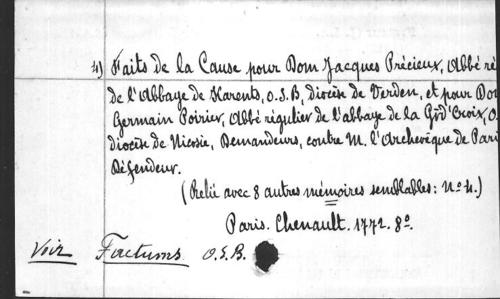 4) Faits de la Cause pour Dom Jacques Précieux, Abbé ré
de l'Abbaye de Karents, O.S.B, diocèse de Verden, et pour Do
Germain Poirier, Abbé régulier de l'abbaye de la Grd' Croix, O.
diocèse de Nicosie, Demandeurs, contre M. l'Archevêque de Pari
Défendeur.
(Relié avec 8 autres mémoires semblables: No 4.)
Paris. Chenault. 1772. 8o.
Voir Factums O.S.B.